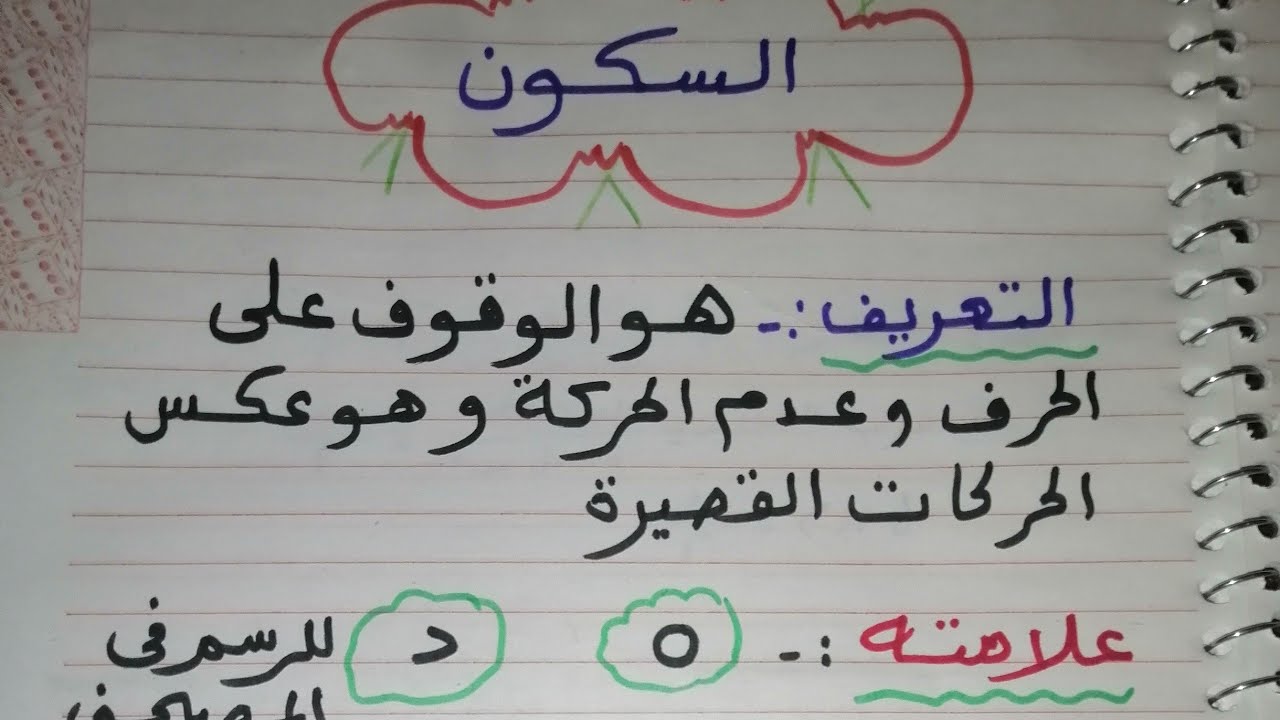 السكون
التعريف :- هو الوقوف على
الحرف وعدم الحركة وهو عكس
الحركات القصيرة
علامته :- ه د للرسم فى
المصحف